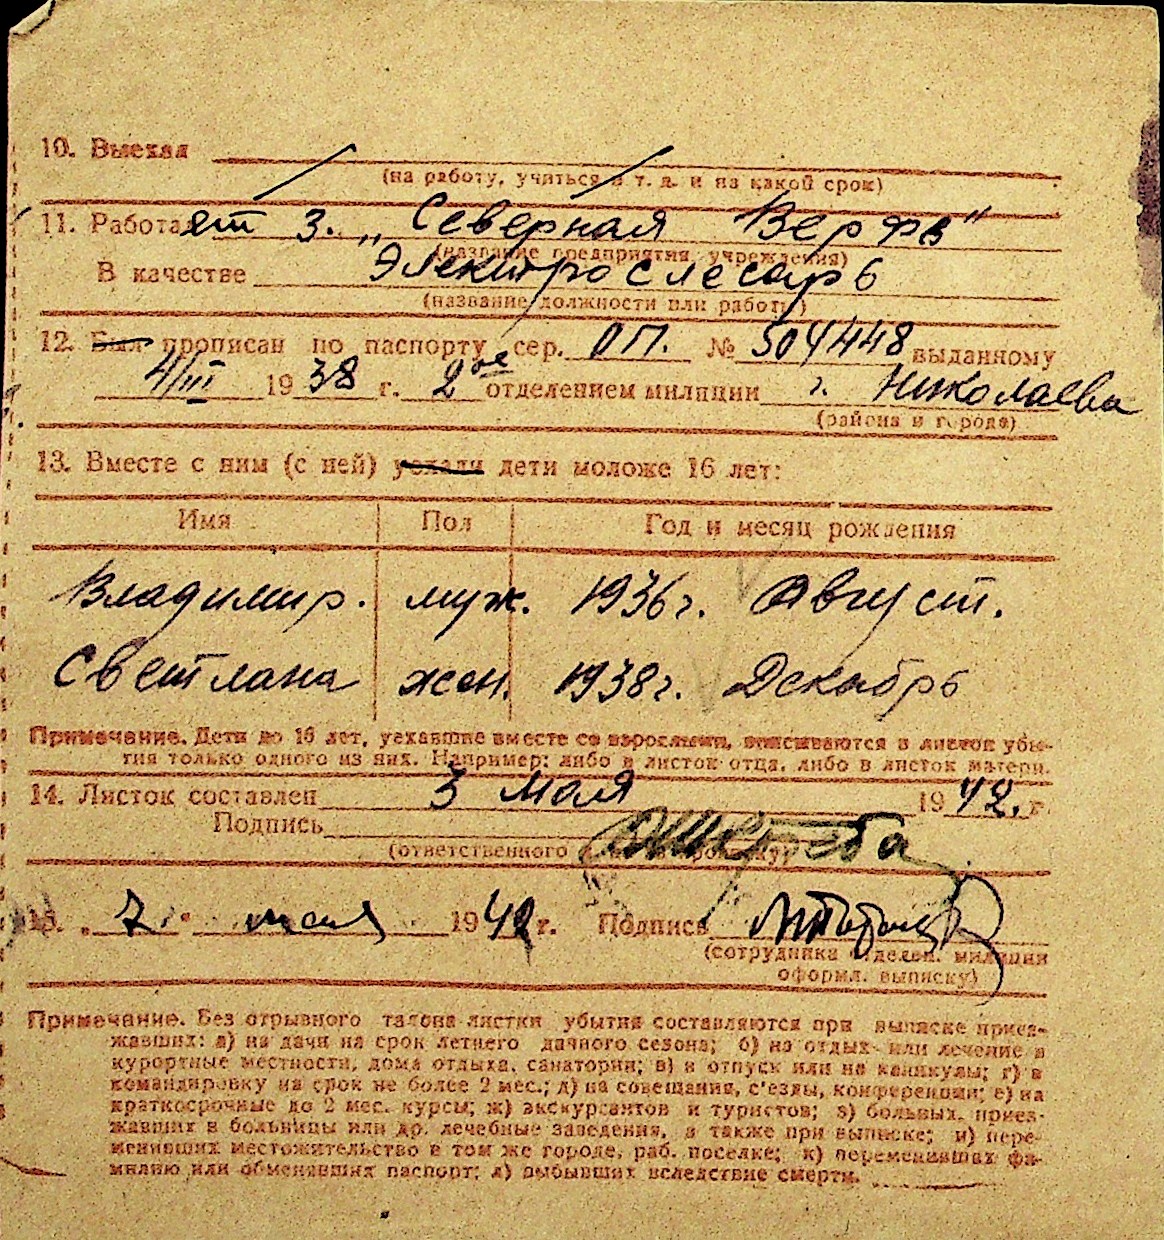 10. Выехал
(на работу, учиться и т. д. и на какой срок)
11. Работает з. „Северная Верфь"
(название предприятия, учреждения)
В качестве Электрослесарь
(название должности или работы)
12. Был прописан по паспорту сер. ОП. № 504448 выданному
4/III 1938 г. 2ое отделением милиции г. Николаева
(района и города)
13. Вместе с ним (с ней) уехали дети моложе 16 лет:
Имя Пол Год и месяц рождения
Владимир. муж. 1936 г. Август.
Светлана жен. 1938 г. Декабрь
Примечание. Дети до 16 лет, уехавшие вместе со взрослыми, вписываются в листок убы-
тия только одного из них. Например: либо в листок отца, либо в листок матери.
14. Листок составлен 3 мая 1942. г.
Подпись
(ответственного за прописку)
15. „ 7. " мая 1942 г. Подпись
(сотрудника отделен. милиции
оформл. выписку)
Примечание. Без отрывного талона листки убытия составляются при выписке приез-
жавших: а) на дачи на срок летнего дачного сезона; б) на отдых или лечение в
курортные местности, дома отдыха, санатории; в) в отпуск или на каникулы; г) в
командировку на срок не более 2 мес.; д) на совещания, с'езды, конференции; е) на
краткосрочные до 2 мес. курсы; ж) экскурсантов и туристов; з) больных, приез-
жавших в больницы или др. лечебные заведения, а также при выписке; и) пере-
менивших местожительство в том же городе, раб. поселке; к) переменивших фа-
милию или обменявших паспорт; л) выбывших вследствие смерти.